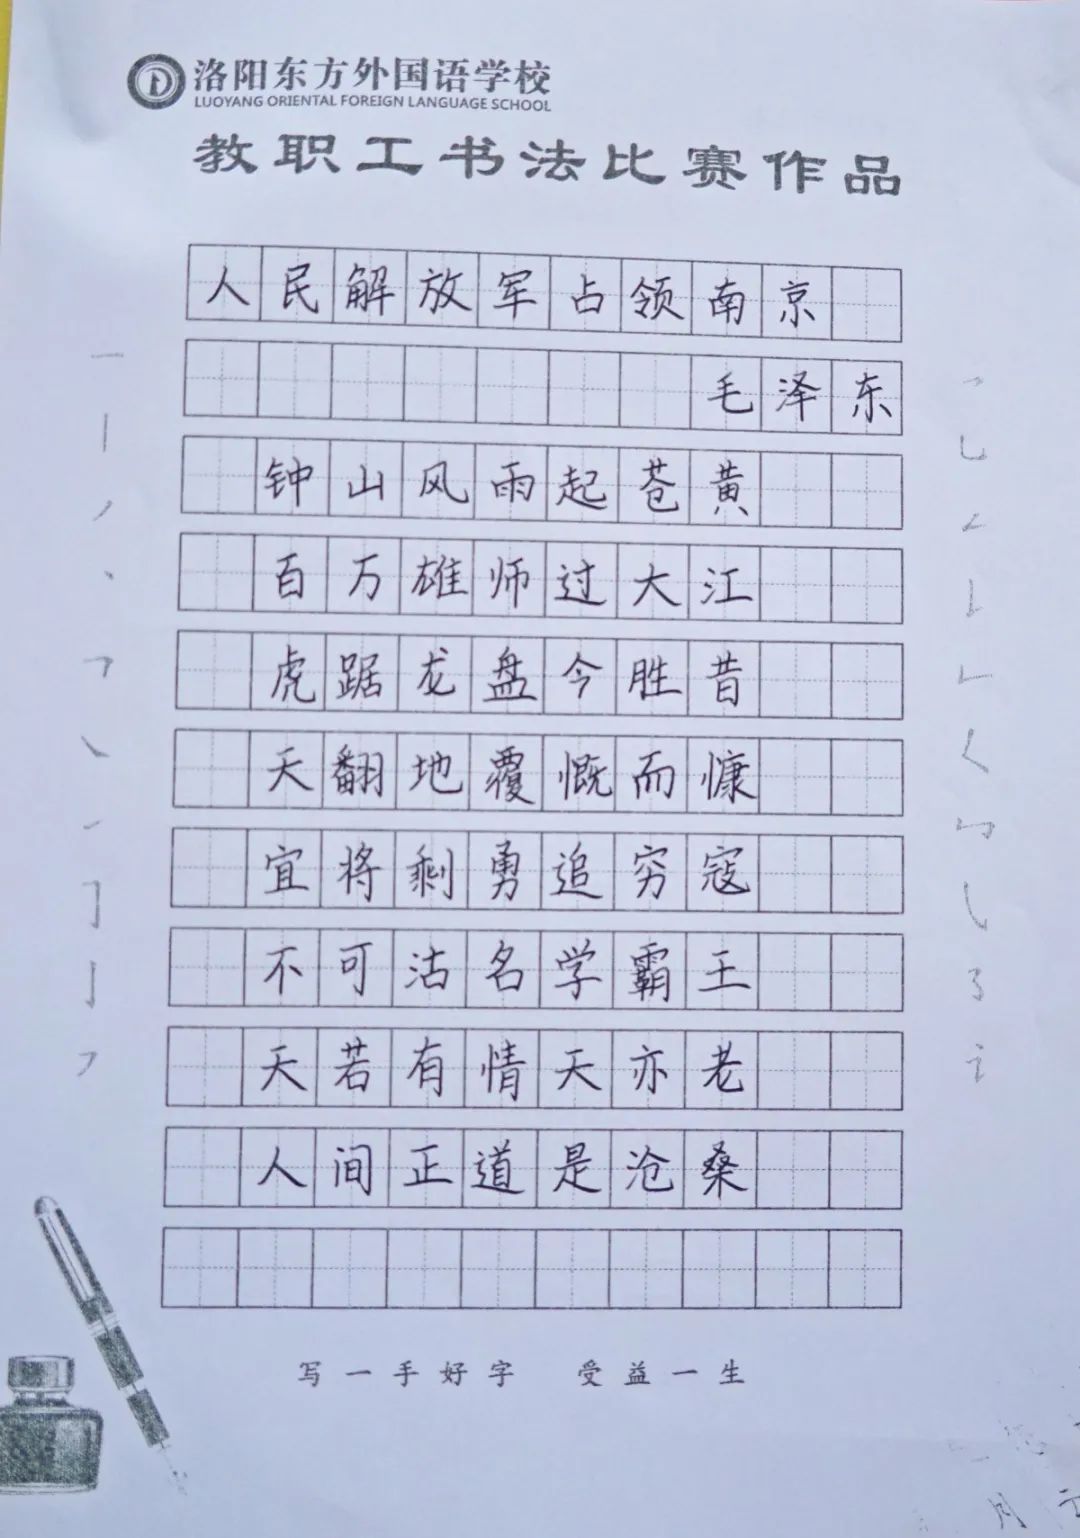 洛阳东方外国语学校
LUOYANG ORIENTAL FOREIGN LANGUAGE SCHOOL
教职工书法比赛作品
人民解放军占领南京
毛泽东
钟山风雨起苍黄
百万雄师过大江
虎踞龙盘今胜昔
天翻地覆慨而慷
宜将剩勇追穷寇
不可沽名学霸王
天若有情天亦老
人间正道是沧桑
写一手好字 受益一生
月